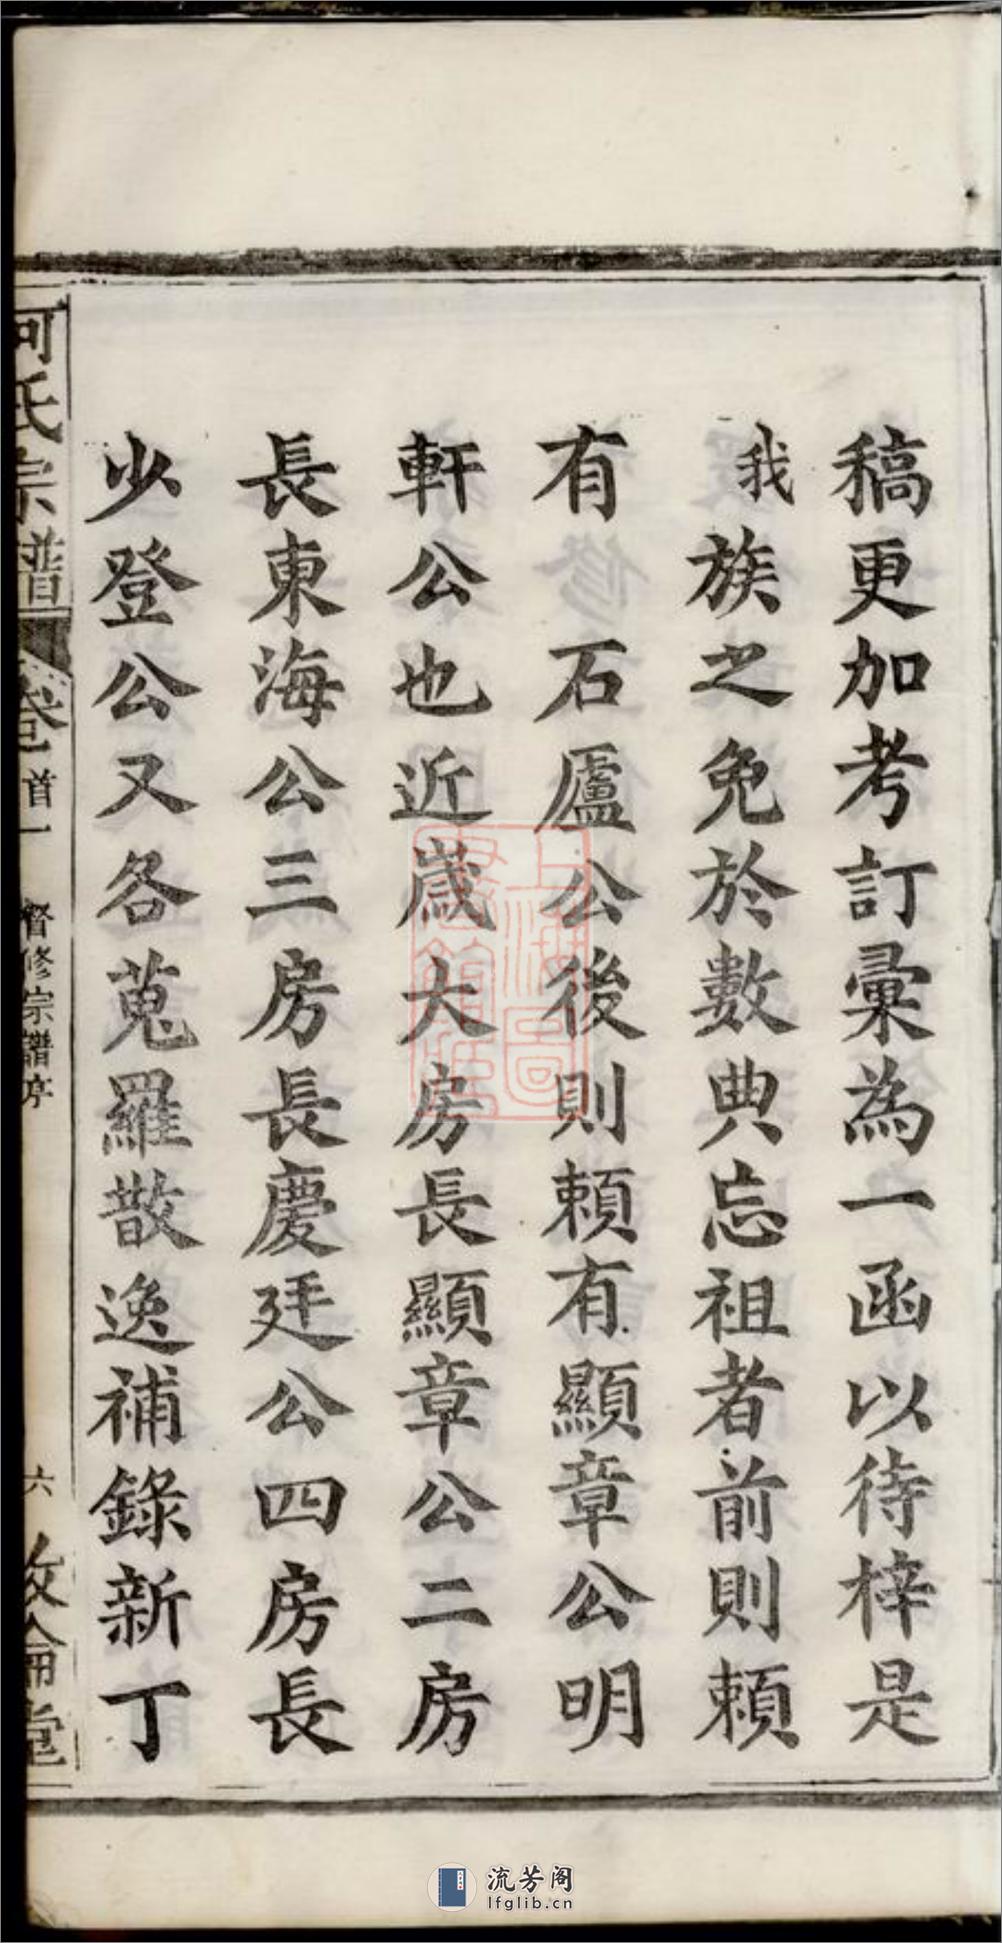 稿更加考訂彙為一函以待梓是
我族之免於數典忘祖者前則賴
有　石廬公後則賴有顯章公明
軒公也近歲大房長顯章公二房
長東海公三房長慶廷公四房長
少登公又各蒐羅散逸補錄新丁
河氏宗譜
卷首一
督修宗譜序
六
敦倫堂
上海圖書館藏
流芳阁
lfglib.cn